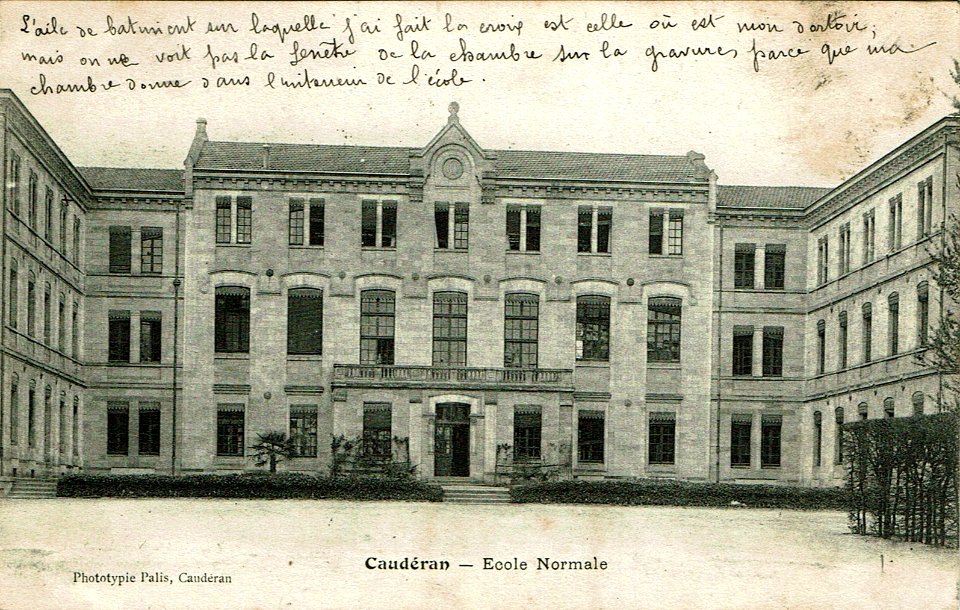 L'aile de batiment sur laquelle j'ai fait la croix est celle où est mon dortoir,
mais on ne voit pas la fenêtre de la chambre sur la gravure, parce que ma
chambre donne dans l'interieur de l'école.
Caudéran — Ecole Normale
Phototypie Palis, Caudéran